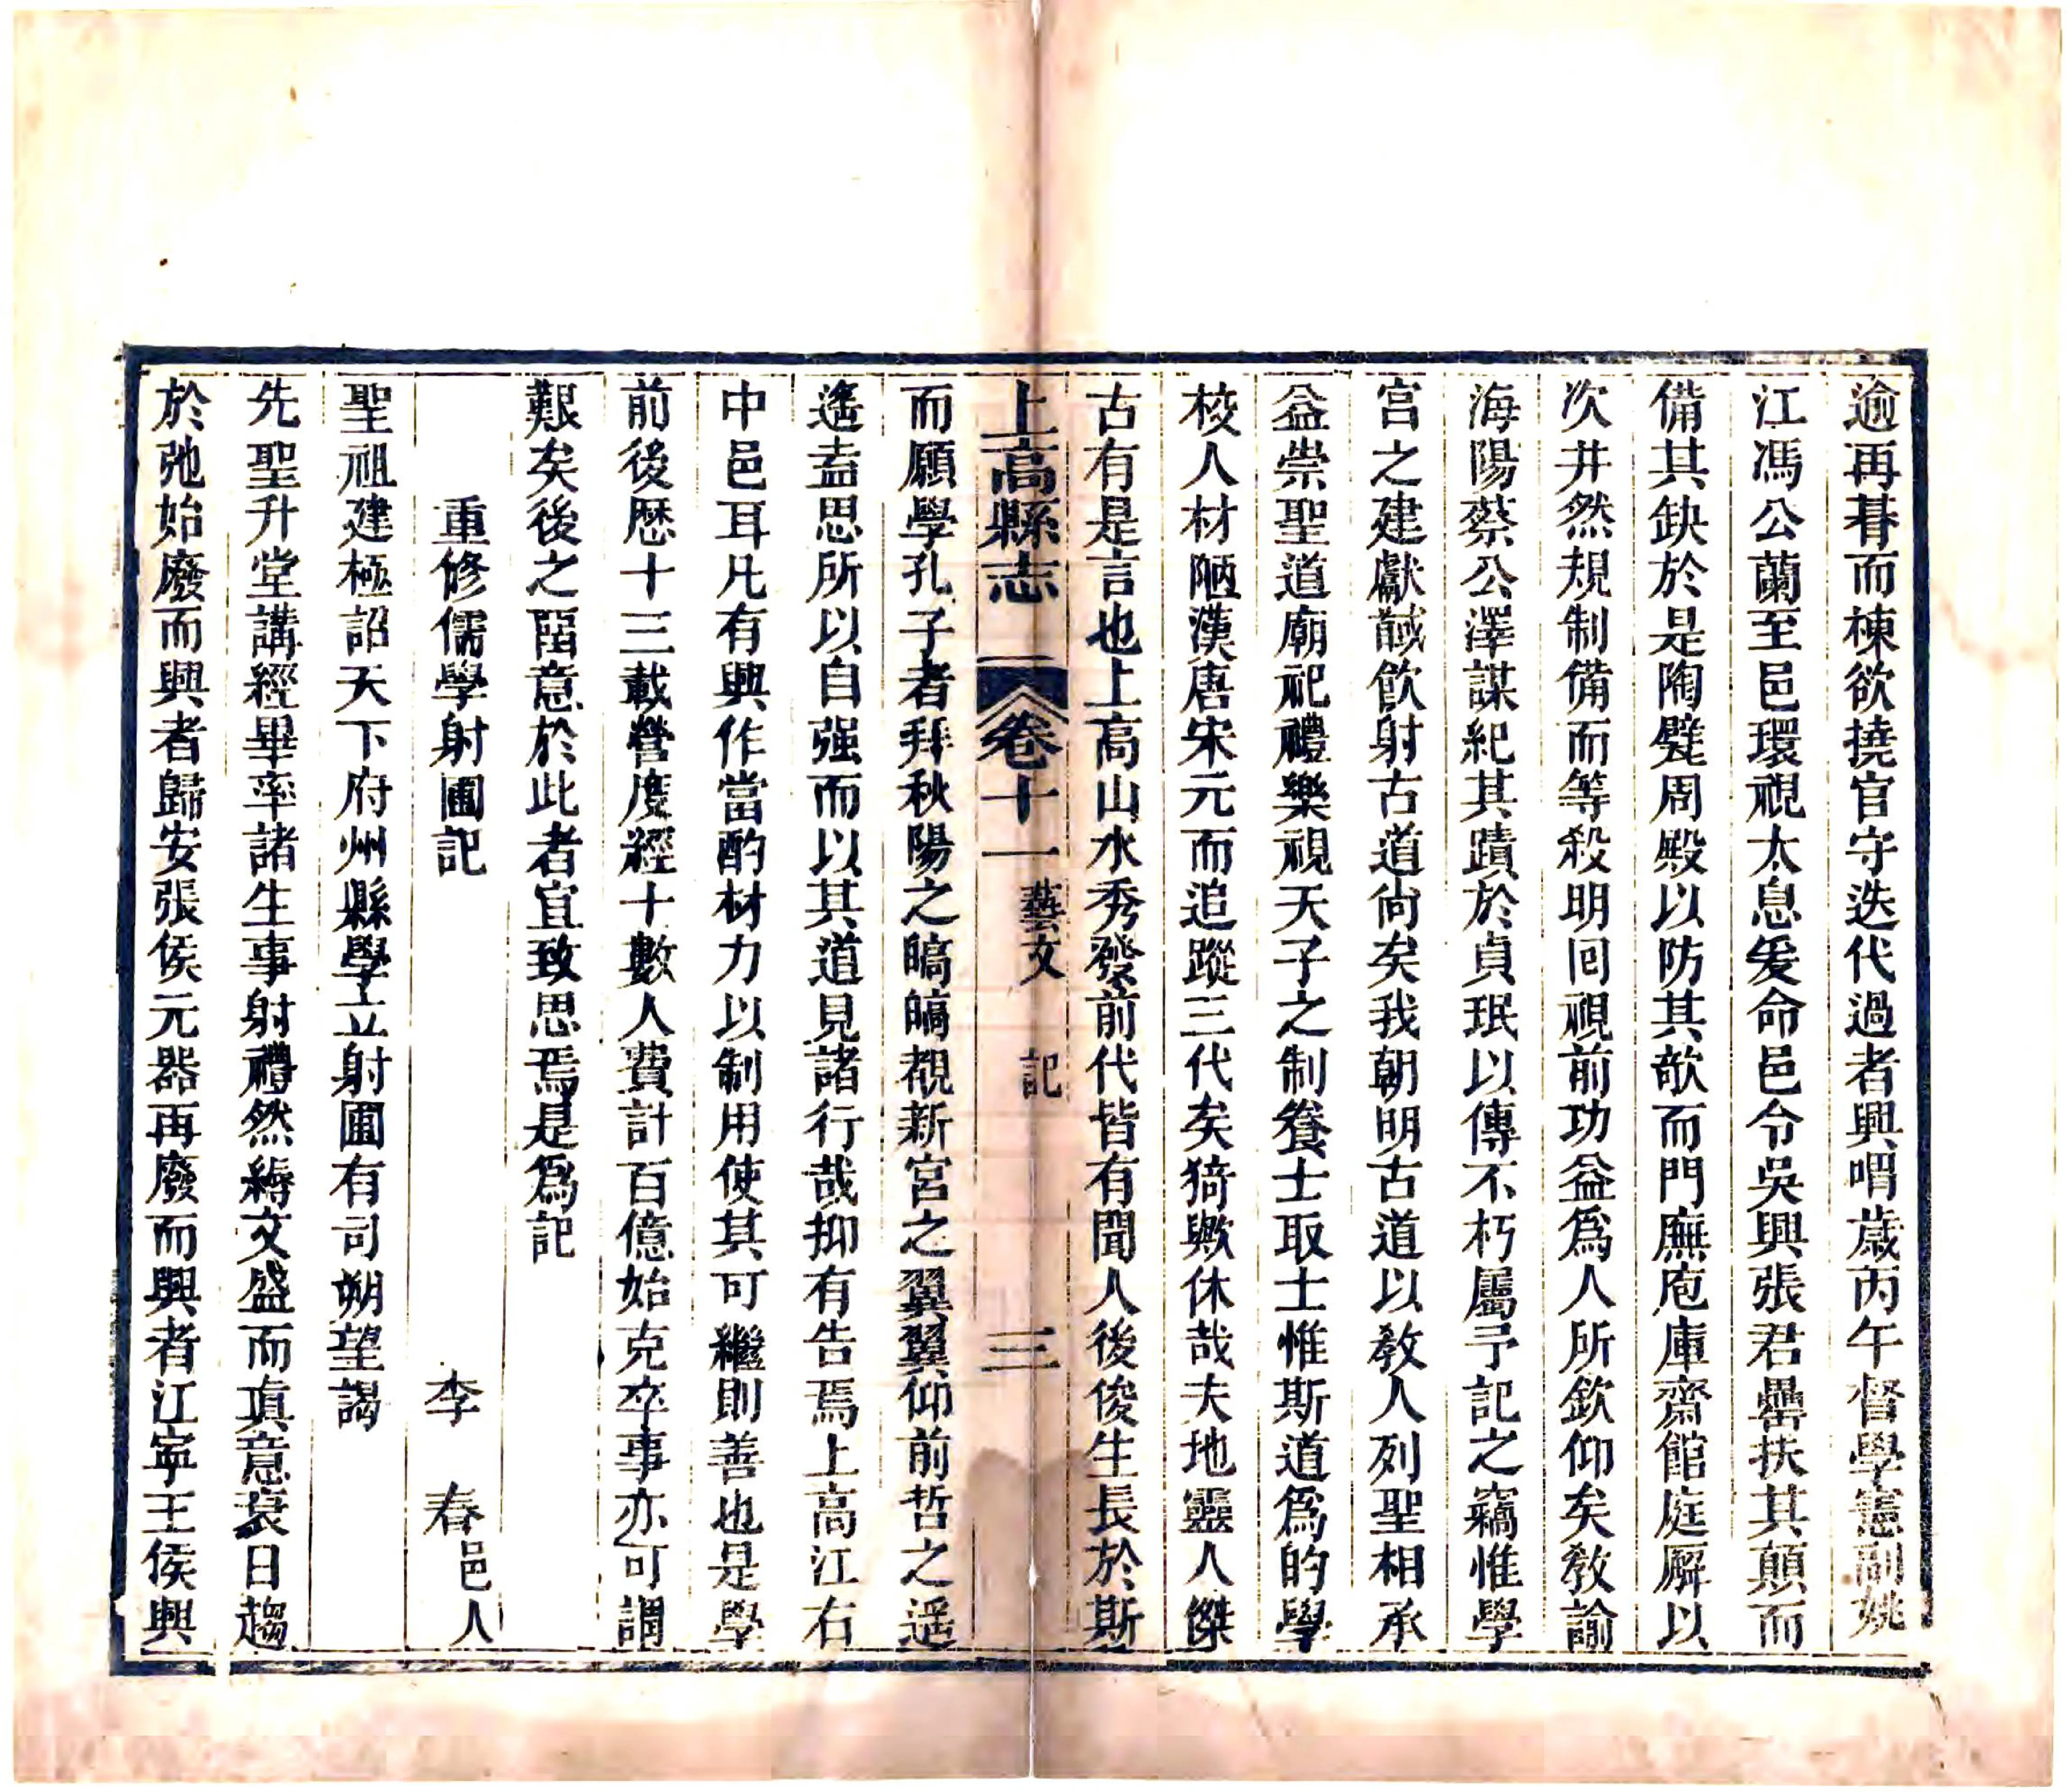 逾再朞而棟欲撓官守迭代過者興喟歲丙午督學憲副姚
江馮公蘭至邑環視太息爰命邑令吳興張君罍扶其顛而
備其缺於是陶甓周殿以防其欹而門廡庖庫齋館庭廨以
次井然規制備而等殺明囘視前功益爲人所欽仰矣敎諭
海陽蔡公澤謀紀其蹟於貞珉以傳不朽屬予記之竊惟學
宫之建獻馘飲射古道尙矣我朝明古道以敎人列聖相承
益崇聖道廟祀禮樂視天子之制養士取士惟斯道爲的學
校人材陋漢唐宋元而追蹤三代矣猗歟休哉夫地靈人傑
古有是言也上高山水秀發前代皆有聞人後俊生長於斯
上高縣志 卷十一 藝文 記 三
而願學孔子者拜秋陽之皜皜覩新宫之翼翼仰前哲之遥
遙盍思所以自强而以其道見諸行哉抑有告焉上高江右
中邑耳凡有興作當酌材力以制用使其可繼則善也是學
前後歷十三載營度經十數人費計百億始克卒事亦可謂
艱矣後之畱意於此者宜致思焉是爲記
重修儒學射圃記 李春邑人
聖祖建極詔天下府州縣學立射圃有司朔望謁
先聖升堂講經畢率諸生事射禮然縟文盛而真意衰日趨
於弛始廢而興者歸安張侯元器再廢而興者江寧王侯興